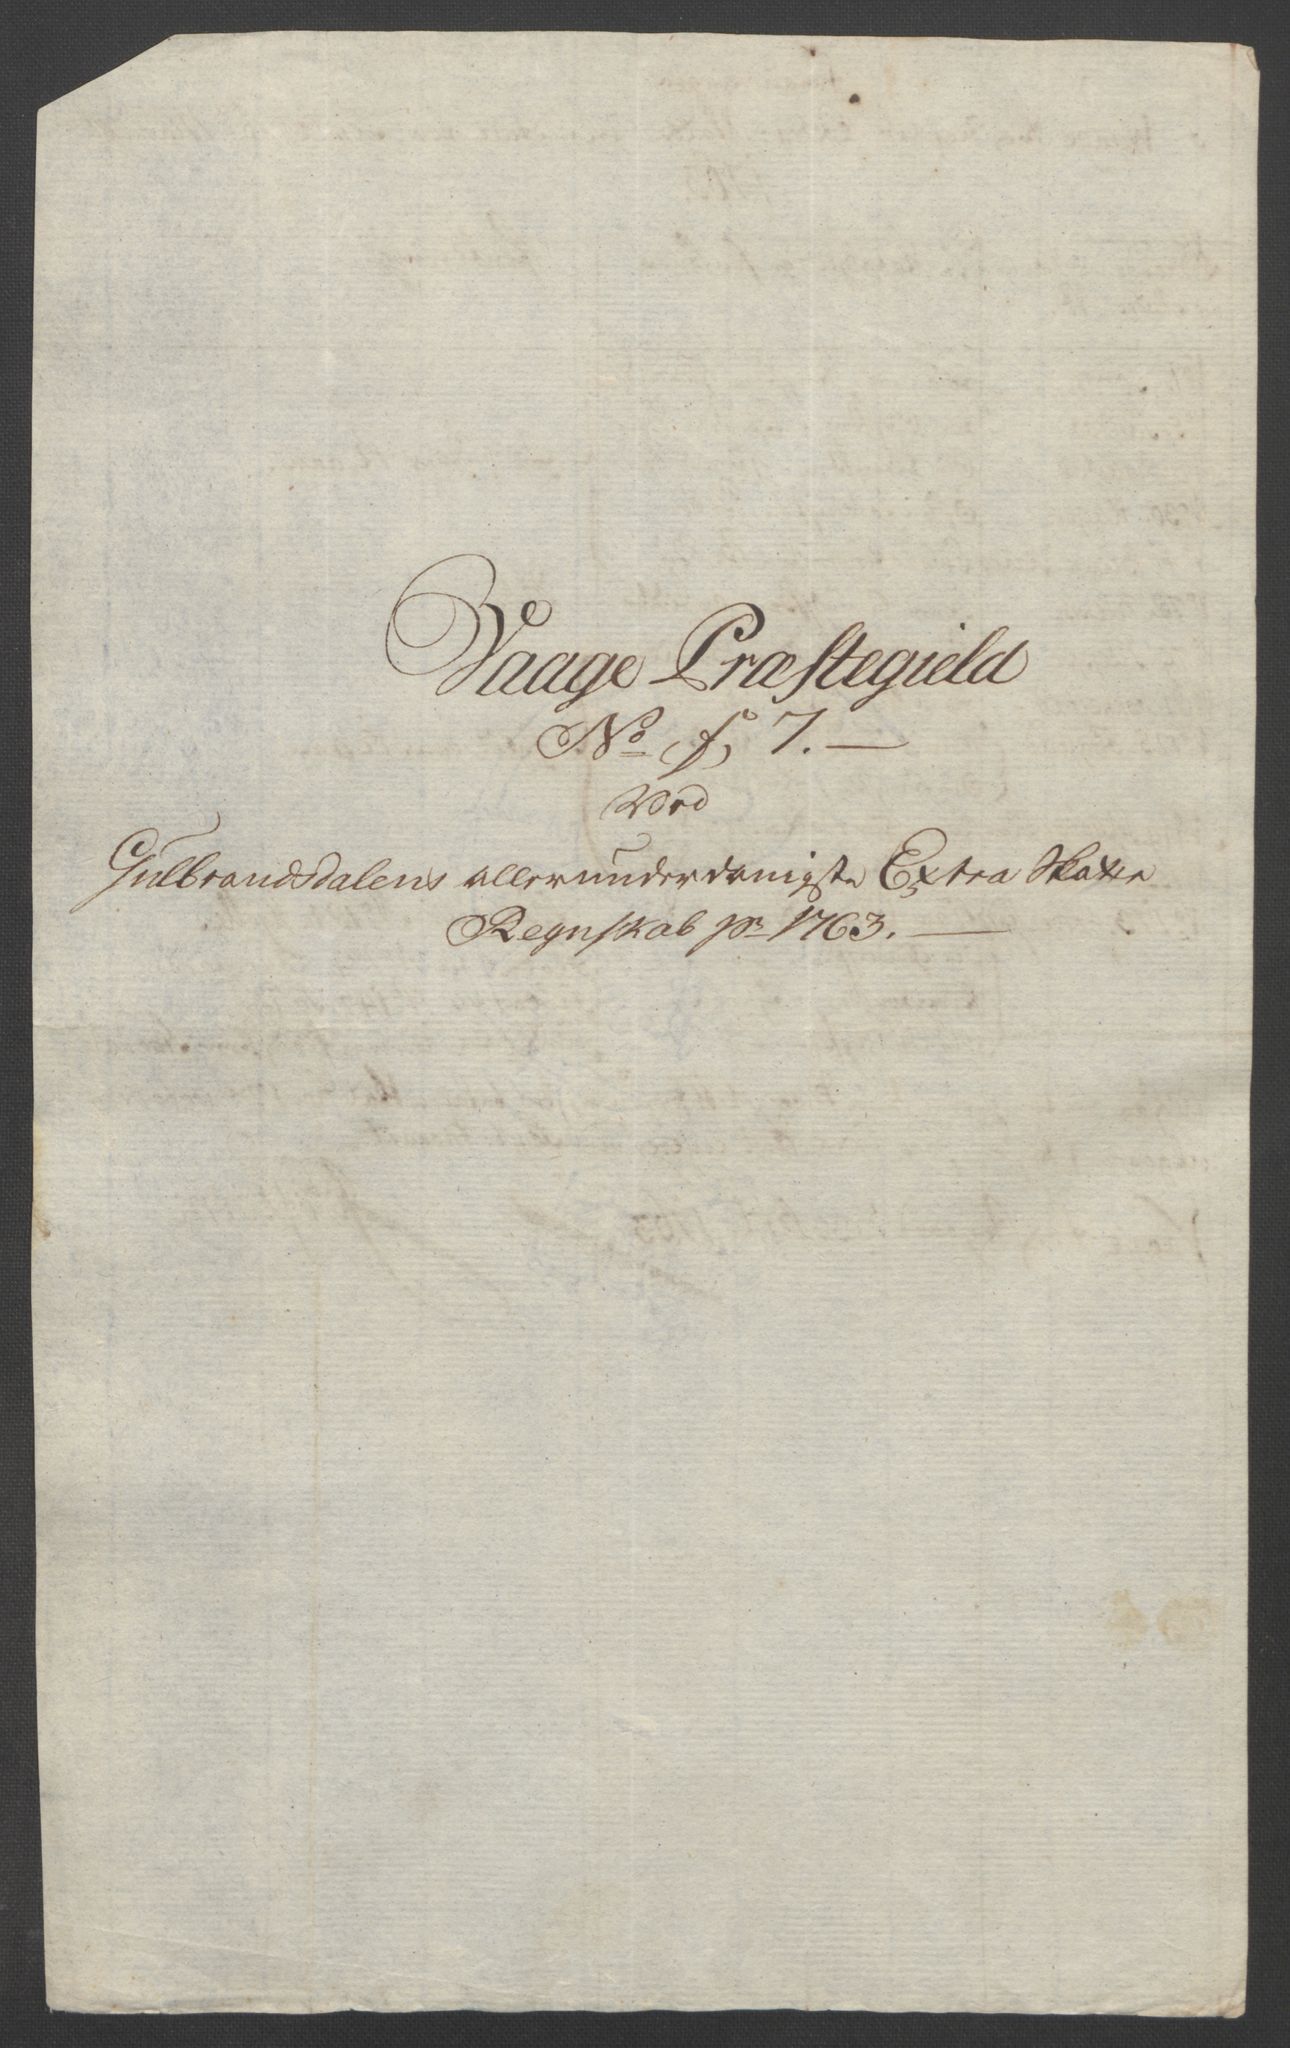 Vaage Præstegield
No f, 7. —
Ved
Gulbrandsdalens allerunderdanigste Extra Skatte
Regnskab pr 1763. —